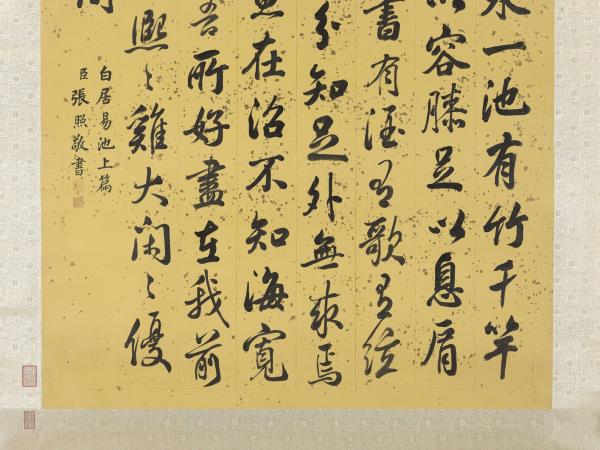 水一池有竹千竿
以容膝足以息肩
書有酒有歌有絃
分知足外無求焉
在沼不知海寬
吾所好盡在我前
熙〻雞犬閑〻優
間
白居易池上篇
臣張照敬書